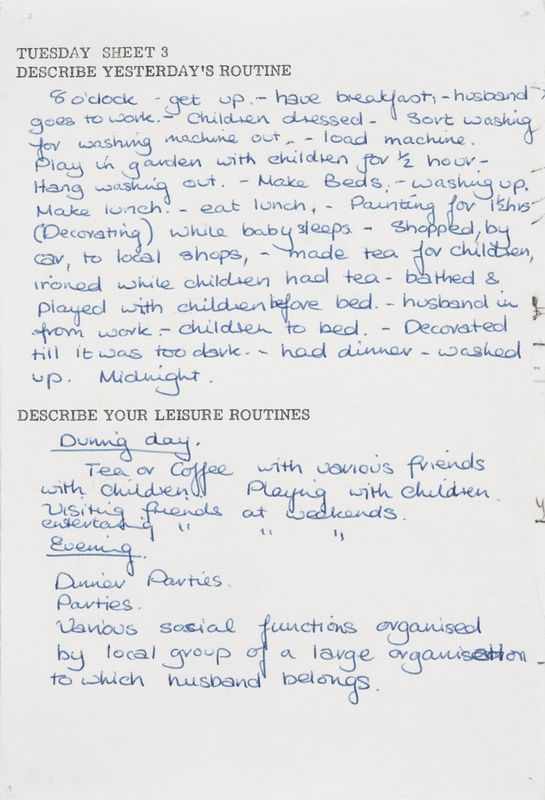 TUESDAY SHEET 3
DESCRIBE YESTERDAY'S ROUTINE
8 o'clock - get up. - have breakfast, - husband
goes to work. - Children dressed - Sort washing
for washing machine out, - load machine.
Play in garden with children for ½ hour -
Hang washing out. - Make Beds, - washing up.
Make lunch. - eat lunch, - Painting for 1½hrs
(Decorating) while baby sleeps - Shopped, by
car, to local shops, - made tea for children,
ironed while children had tea - bathed &
played with children before bed. - husband in
from work - children to bed. - Decorated
till it was too dark. - had dinner - washed
up. Midnight.
DESCRIBE YOUR LEISURE ROUTINES
During day.
Tea or Coffee with various friends
with children. Playing with children.
Visiting friends at weekends.
entertaining " " "
Evening.
Dinner Parties.
Parties.
Various social functions organised
by local group of a large organisation
to which husband belongs.